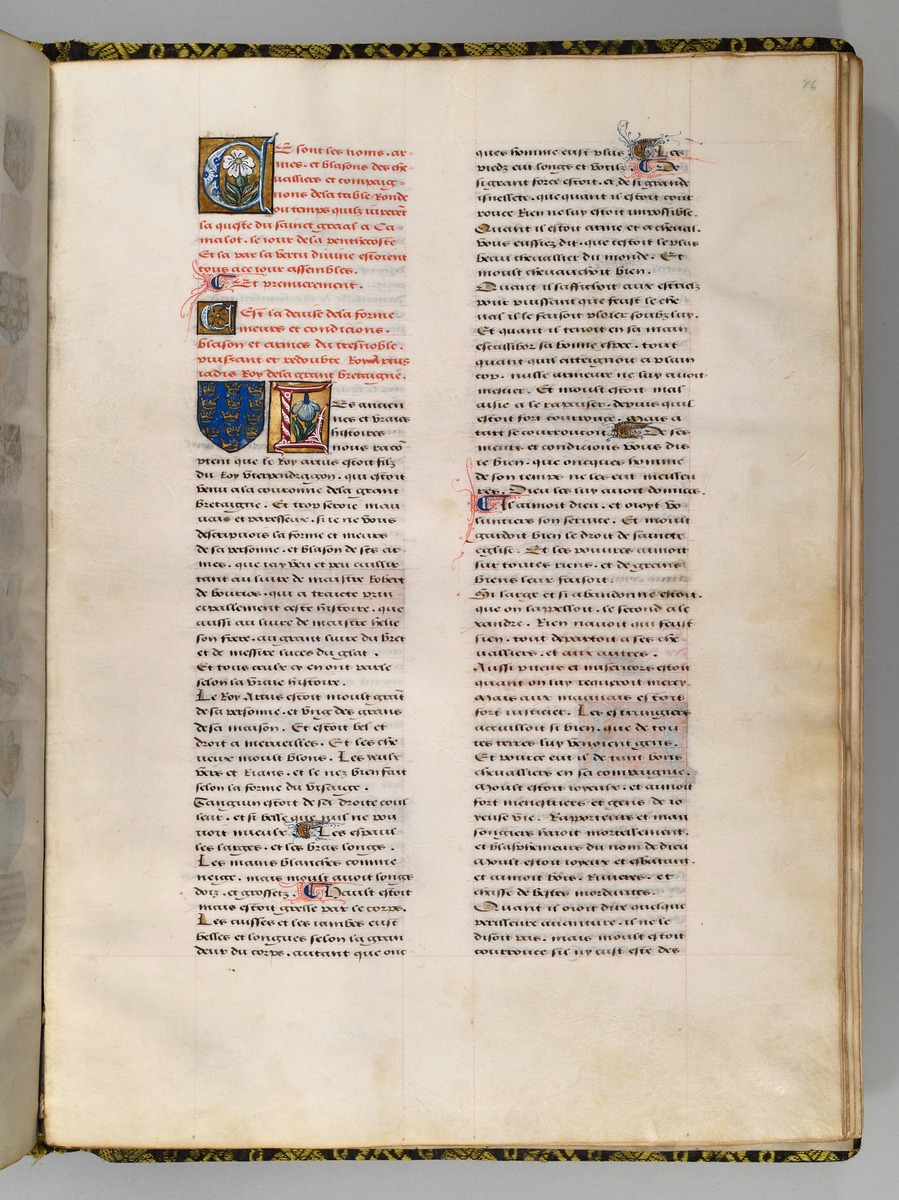 CE sont les noms. ar-
mes. et blasons des che-
valliers et compaig-
nons dela table Ronde
ou temps quilz iurerent
la queste du sainct graal a Ca-
malot. le iour dela penthecoste
Et la par la vertu divine estoient
tous ace iour assembles.
Et premierement.
CEst la devise dela forme
meurs et condicions.
blason et armes du tresnoble.
puissant et redoubte Roy Artus
iadis Roy dela grant bretaigne.
LEs ancien
nes et vraies
histoires
nous racō
ptent que le Roy artus estoit filz
du Roy vterpendragon. qui estoit
venu a la couronne dela grant
bretaigne. Et trop seroie mau
uais et paresseux. si ie ne vous
descripuois la forme et meurs
de sa personne. et blason de ses ar
mes. que iay veu et peu cuillir
tant au liure de maistre Robert
de bourros. qui a traicte prin
cipallement ceste histoire. que
aussi au liure de maistre helie
son frere. au grant liure du bret
et de messire luces du glat.
Et tous ceulx cy en ont parle
selon la vraie histoire.
Le Roy Artus estoit moult grant
de sa personne. et vng des grans
de sa maison. Et estoit bel et
droit a merueilles. Et les che
ueux moult blons. Les yeulx
vers et Rians. et le nez bien fait
selon la forme du visaige.
Sanguin estoit de sa droite coul
leur. et si belle que nul ne pou
uoit mieulx. Les espaul
les larges. et les bras longs.
Les mains blanches comme
neige. mais moult auoit longs
doiz. et grossetz. Hault estoit
mais estoit gresle par le corps.
Les cuisses et les iambes eust
belles et longues selon la gran
deur du corps. autant que onc
ques homme eust plus. Les
piedz eut longs et voutiz. De
si grant force estoit. et de si grande
isnellete. que quant il estoit cour
rouce Rien ne luy estoit impossible.
Quant il estoit arme et a cheual.
vous eussiez dit. que cestoit le plus
beau cheuallier du monde. Et
moult cheuauchoit bien.
Quant il saffichoit aux estriez
pour puissant que feust le che
ual il le faisoit ploier soubz luy.
Et quant il tenoit en sa main
escallibor sa bonne espee. tout
quant quil atteignoit a plain
cop. nulle armeure ne luy auoit
mestier. Et moult estoit mal
aise a le rapaiser. depuis quil
estoit fort courrouce. Mais a
tart se courroucoit. De ses
meurs et condicions vous dis
ie bien. que oncques homme
de son temps ne les eut meilleu
res. Dieu les luy auoit donnees.
Il aimoit dieu. et oioyt vo
luntiers son seruice. Et moult
gardoit bien le droit de saincte
eglise. Et les poures aimoit
sur toutes riens. et de grans
biens leur faisoit.
Si large et si abandonne estoit.
que on lappelloit. le second ale
xandre. Rien nauoit qui feust
sien. tout departoit a ses che
ualliers. et aux autres.
Aussi piteux et misericors estoit
quant on luy requeroit mercy.
Mais aux mauuais estoit
fort iusticier. Les estrangiers
accuilloit si bien. que de tou
tes terres luy venoient gens.
Et pource eut il de tant bons
cheualliers en sa compaignie.
Moult estoit ioyeulx. et aimoit
fort menestriers et gens de io
yeuse vie. Rapporteurs et man
songiers haioit mortellement.
et blasphemeurs du nom de dieu
Moult estoit ioyeux et esbatant.
et aimoit bois. Riuieres. et
chasse de bestes mordantes.
Quant il oioit dire quelque
perilleuse auanture. il ne le
disoit pas. mais moult estoit
courrouce sil ny eust este des